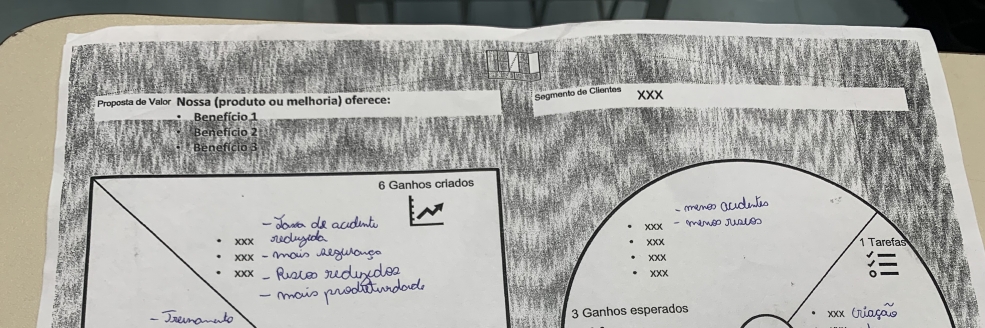 Proposta de Valor Nossa (produto ou melhoria) oferece:
• Benefício 1
• Benefício 2
• Benefício 3
Segmento de Clientes XXX
6 Ganhos criados
- Taxa de acidente
• xxx reduzida
• xxx - mais segurança
• xxx - Riscos reduzidos
- mais produtividade
- Treinamento
- menos acidentes
• xxx - menos riscos
• xxx
• xxx
• xxx
1 Tarefas
3 Ganhos esperados
• xxx criação